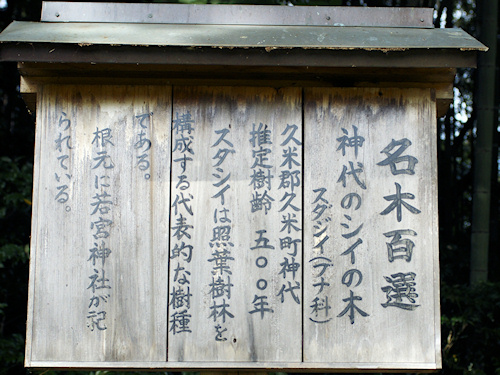 名木百選
神代のシイの木
スダジイ(ブナ科)
久米郡久米町神代
推定樹齢 五〇〇年
スダシイは照葉樹林を
構成する代表的な樹種
である。
根元に若宮神社が祀
られている。